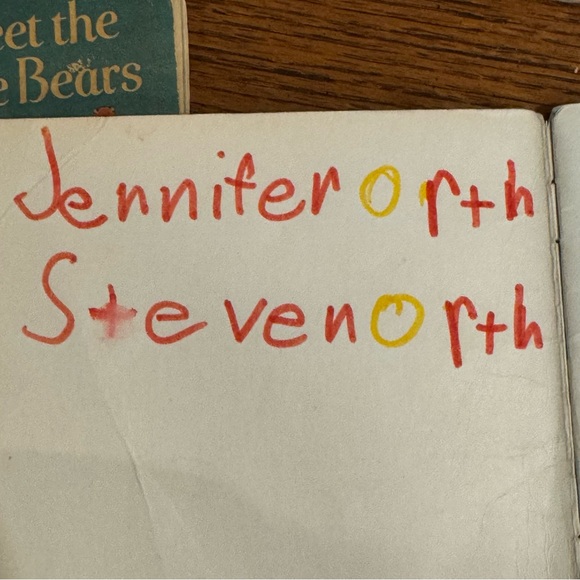 eet the
e Bears
Jennifer Orth
Steven Orth